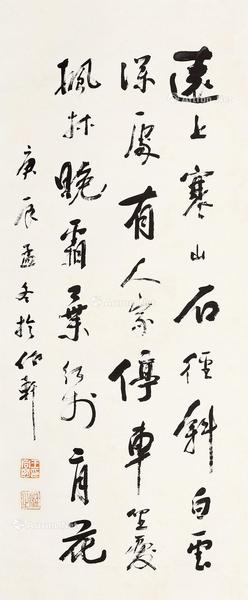 遠上寒山石徑斜白雲
深處有人家停車坐愛
楓林晚霜葉紅於二月花
庚辰孟冬於軒